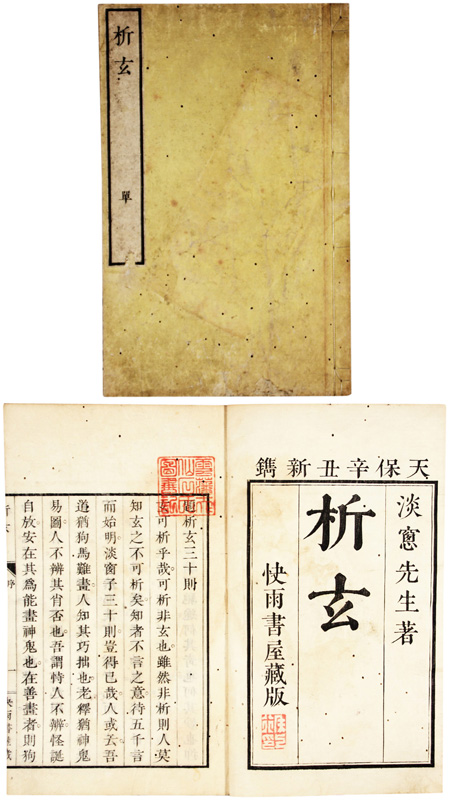 析玄
單
天保辛丑新鐫
淡窻先生著
析玄
快雨書屋藏版
題析玄三十則
玄可析乎哉可析非玄也雖然非析則人莫
知玄之不可析矣知者不言之意待五千言
而始明淡窗子三十則豈得已哉人或云吾
道猶狗馬雖畫人知其巧拙也老釋猶神鬼
易圖人不辨其肖否也吾謂特人不辨怪誕
自放安在其爲能畫神鬼也在善畫者則狗
析玄
序
一
快雨書屋藏